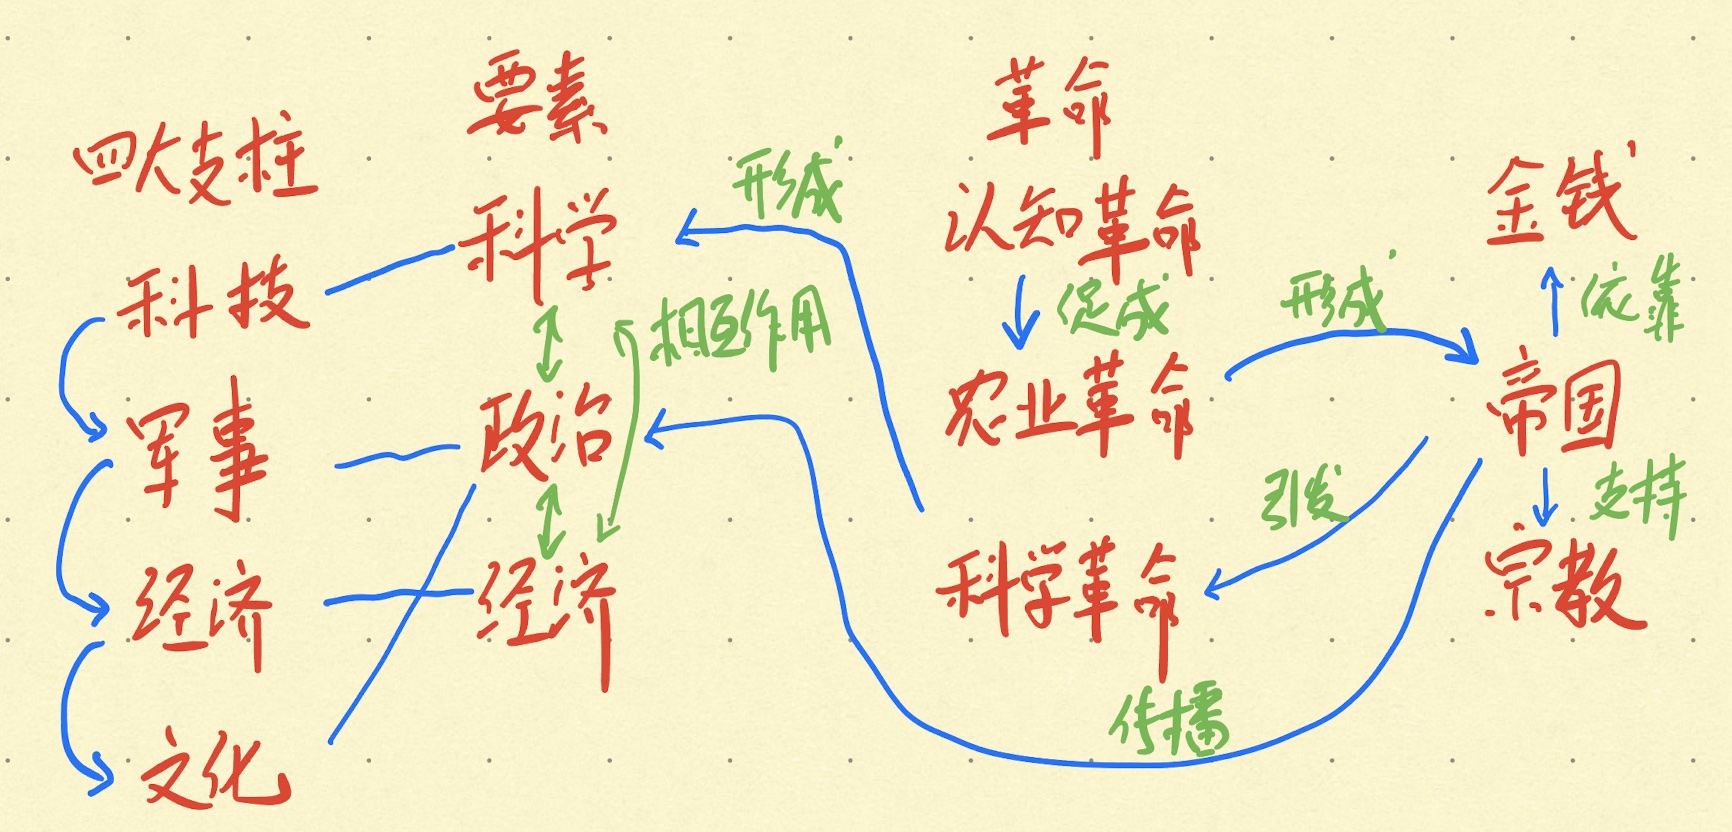 四大支柱
科技
军事
经济
文化
要素
科学
政治
经济
相互作用
形成
革命
认知革命
促成
农业革命
科学革命
形成
引发
传播
金钱
依靠
帝国
支持
宗教